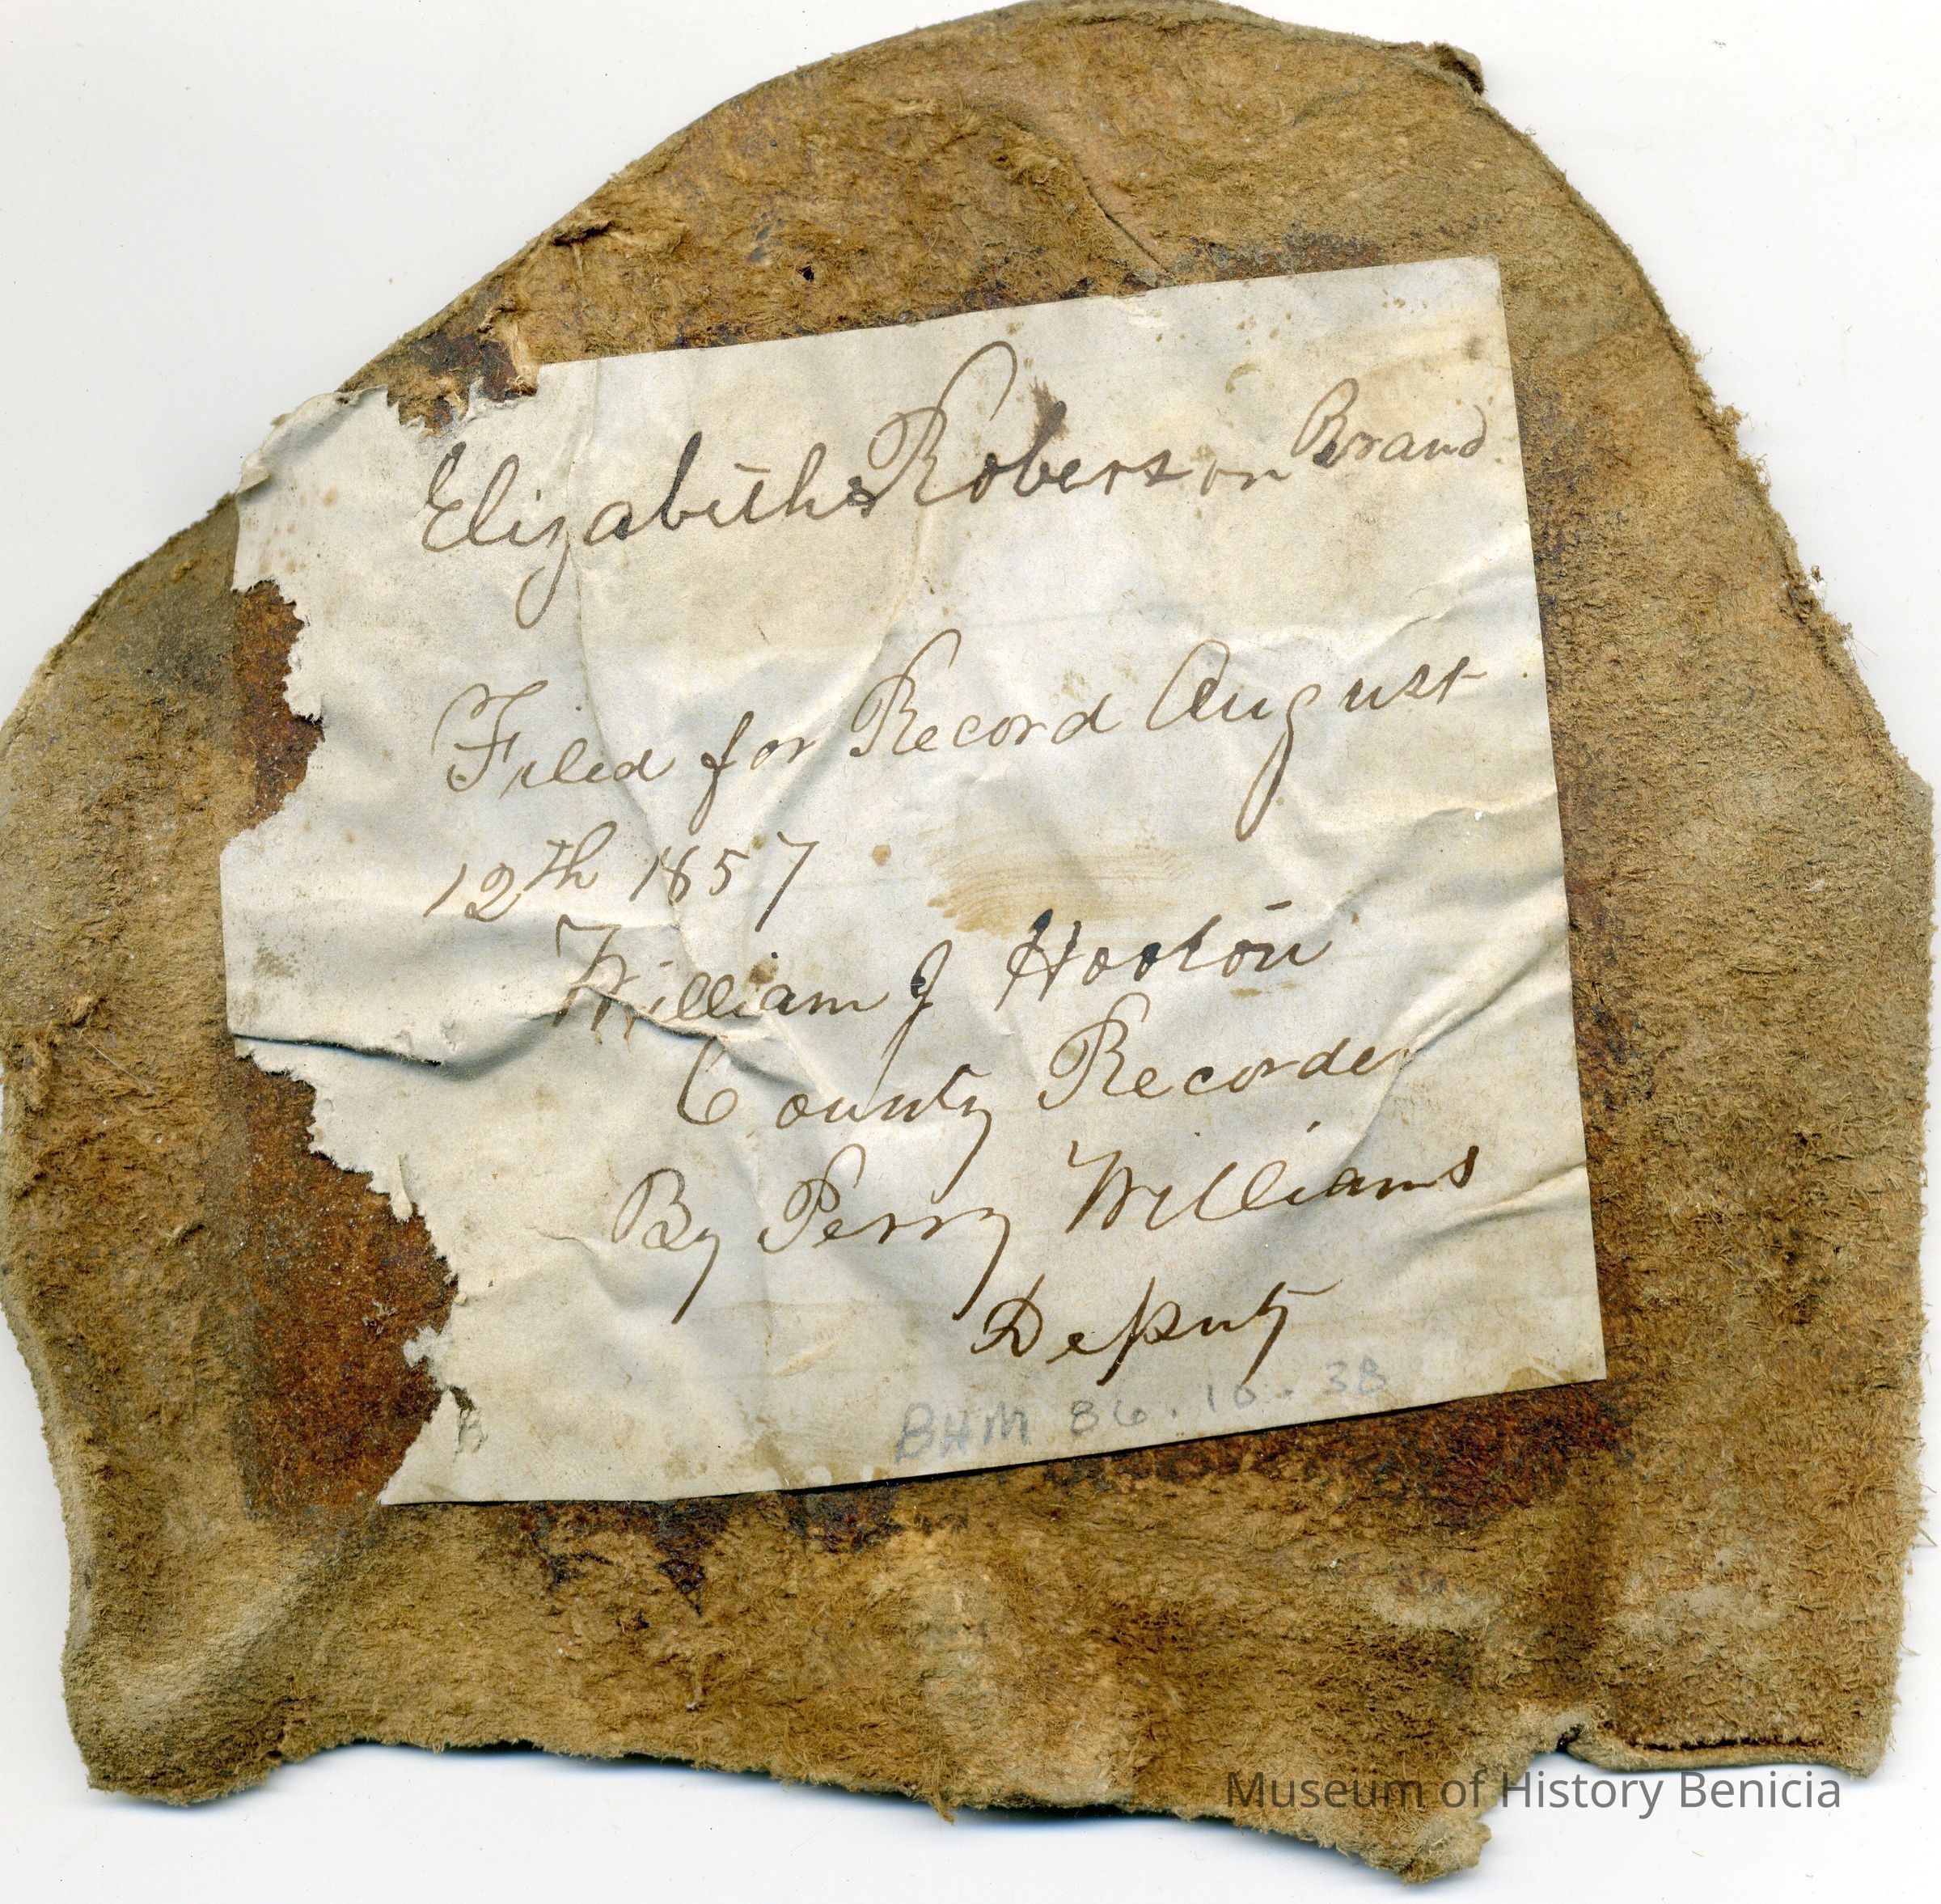 Elizabeth Roberson Brand
Filed for Record August
12th 1857
William J Hooton
County Recorder
By Perry Williams
Deputy
BHM 86.10.38
B
Museum of History Benicia